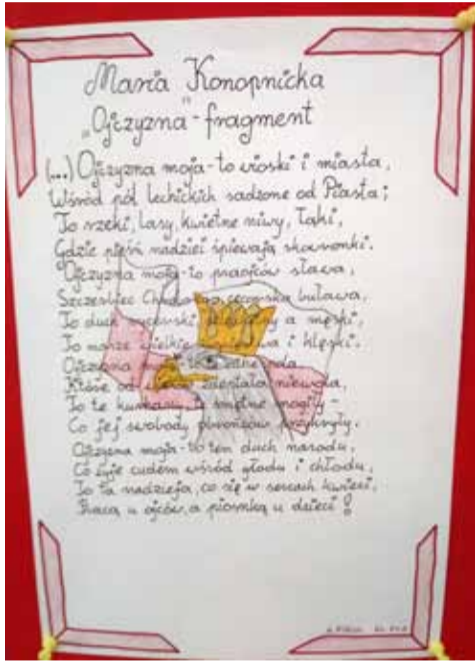 Maria Konopnicka
„Ojczyzna"-fragment
(...) Ojczyzna moja - to wioski i miasta,
Wśród pól lechickich sadzone od Piasta;
To rzeki, lasy, kwietne niwy, łąki,
Gdzie pieśń nadziei śpiewają skowronki.
Ojczyzna moja - to praojców sława,
Szczerbiec Chrobrego, cecorska buława,
To duch rycerski, a męski,
To nasze wielkie i klęski.
Ojczyzna moja - to
Które od niewola,
To te kurhany, te smętne mogiły -
Co jej swobody obrońców przykryły.
Ojczyzna moja - to ten duch narodu,
Co żyje cudem wśród głodu i chłodu,
To ta nadzieja, co się w sercach kwieci,
Pracą u ojców, a piosnką u dzieci!